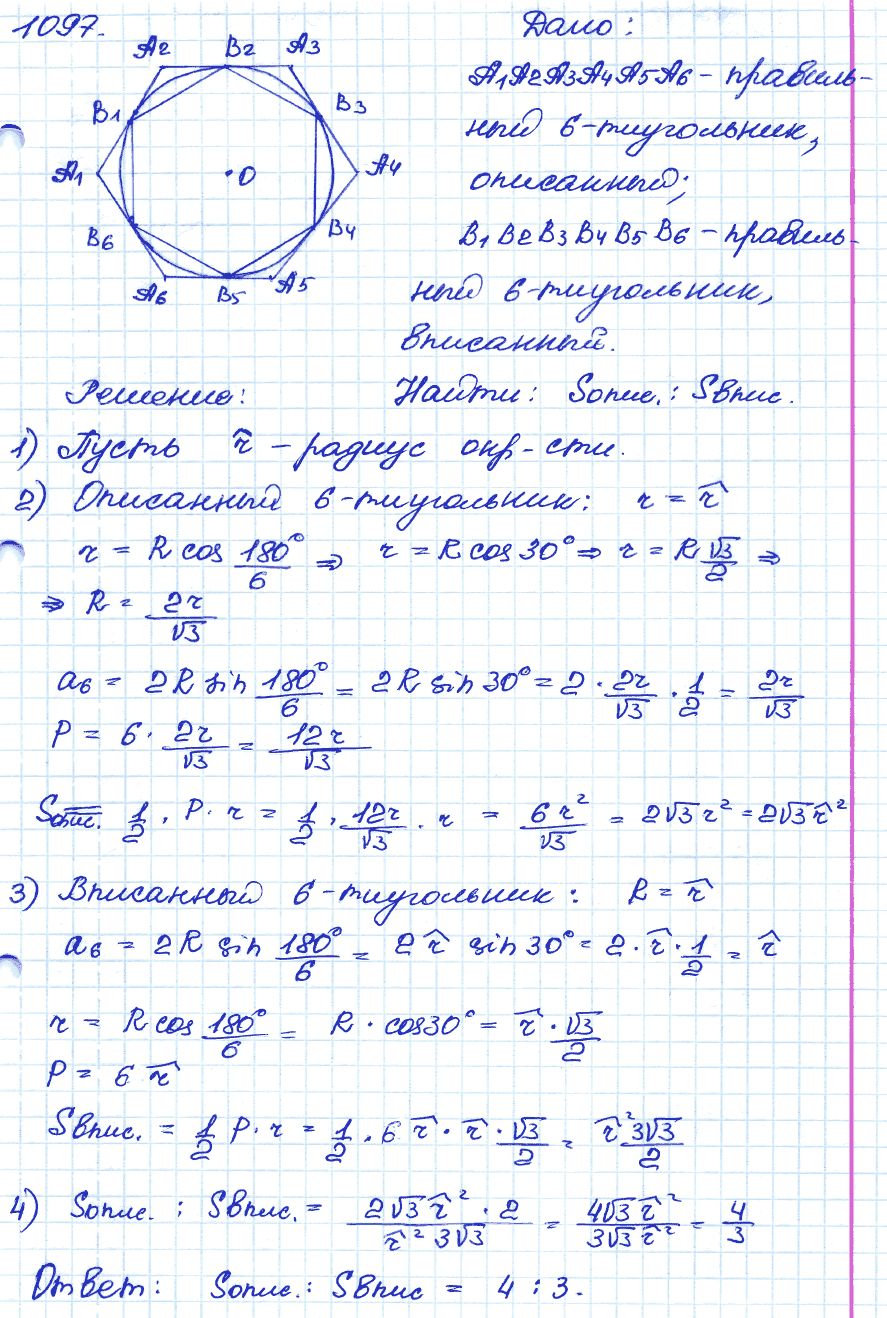 1097.
Дано:
A2 B2 A3
A1A2A3A4A5A6 – правиль-
B1 B3
ный 6-тиугольник,
A1 O A4
описанный;
B6 B4
B1B2B3B4B5B6 – правиль-
A6 B5 A5
ный 6-тиугольник,
вписанный.
Решение: Найти: Sопис. : Sвпис.
1) Пусть r̂ – радиус окр-сти.
2) Описанный 6-тиугольник: r = r̂
r = R cos 180°/6 ⇒ r = R cos 30° ⇒ r = R √3/2 ⇒
⇒ R = 2r/√3
a6 = 2R sin 180°/6 = 2R sin 30° = 2 · 2r/√3 · 1/2 = 2r/√3
P = 6 · 2r/√3 = 12r/√3
Sопис. = 1/2 · P · r = 1/2 · 12r/√3 · r = 6r²/√3 = 2√3 r² = 2√3 r̂²
3) Вписанный 6-тиугольник: R = r̂
a6 = 2R sin 180°/6 = 2 r̂ sin 30° = 2 · r̂ · 1/2 = r̂
r = R cos 180°/6 = R · cos 30° = r̂ · √3/2
P = 6 r̂
Sвпис. = 1/2 P · r = 1/2 · 6 r̂ · r̂ · √3/2 = r̂² 3√3/2
4) Sопис. : Sвпис. = 2√3 r̂² · 2/r̂² 3√3 = 4√3 r̂²/3√3 r̂² = 4/3
Ответ: Sопис. : Sвпис = 4 : 3.